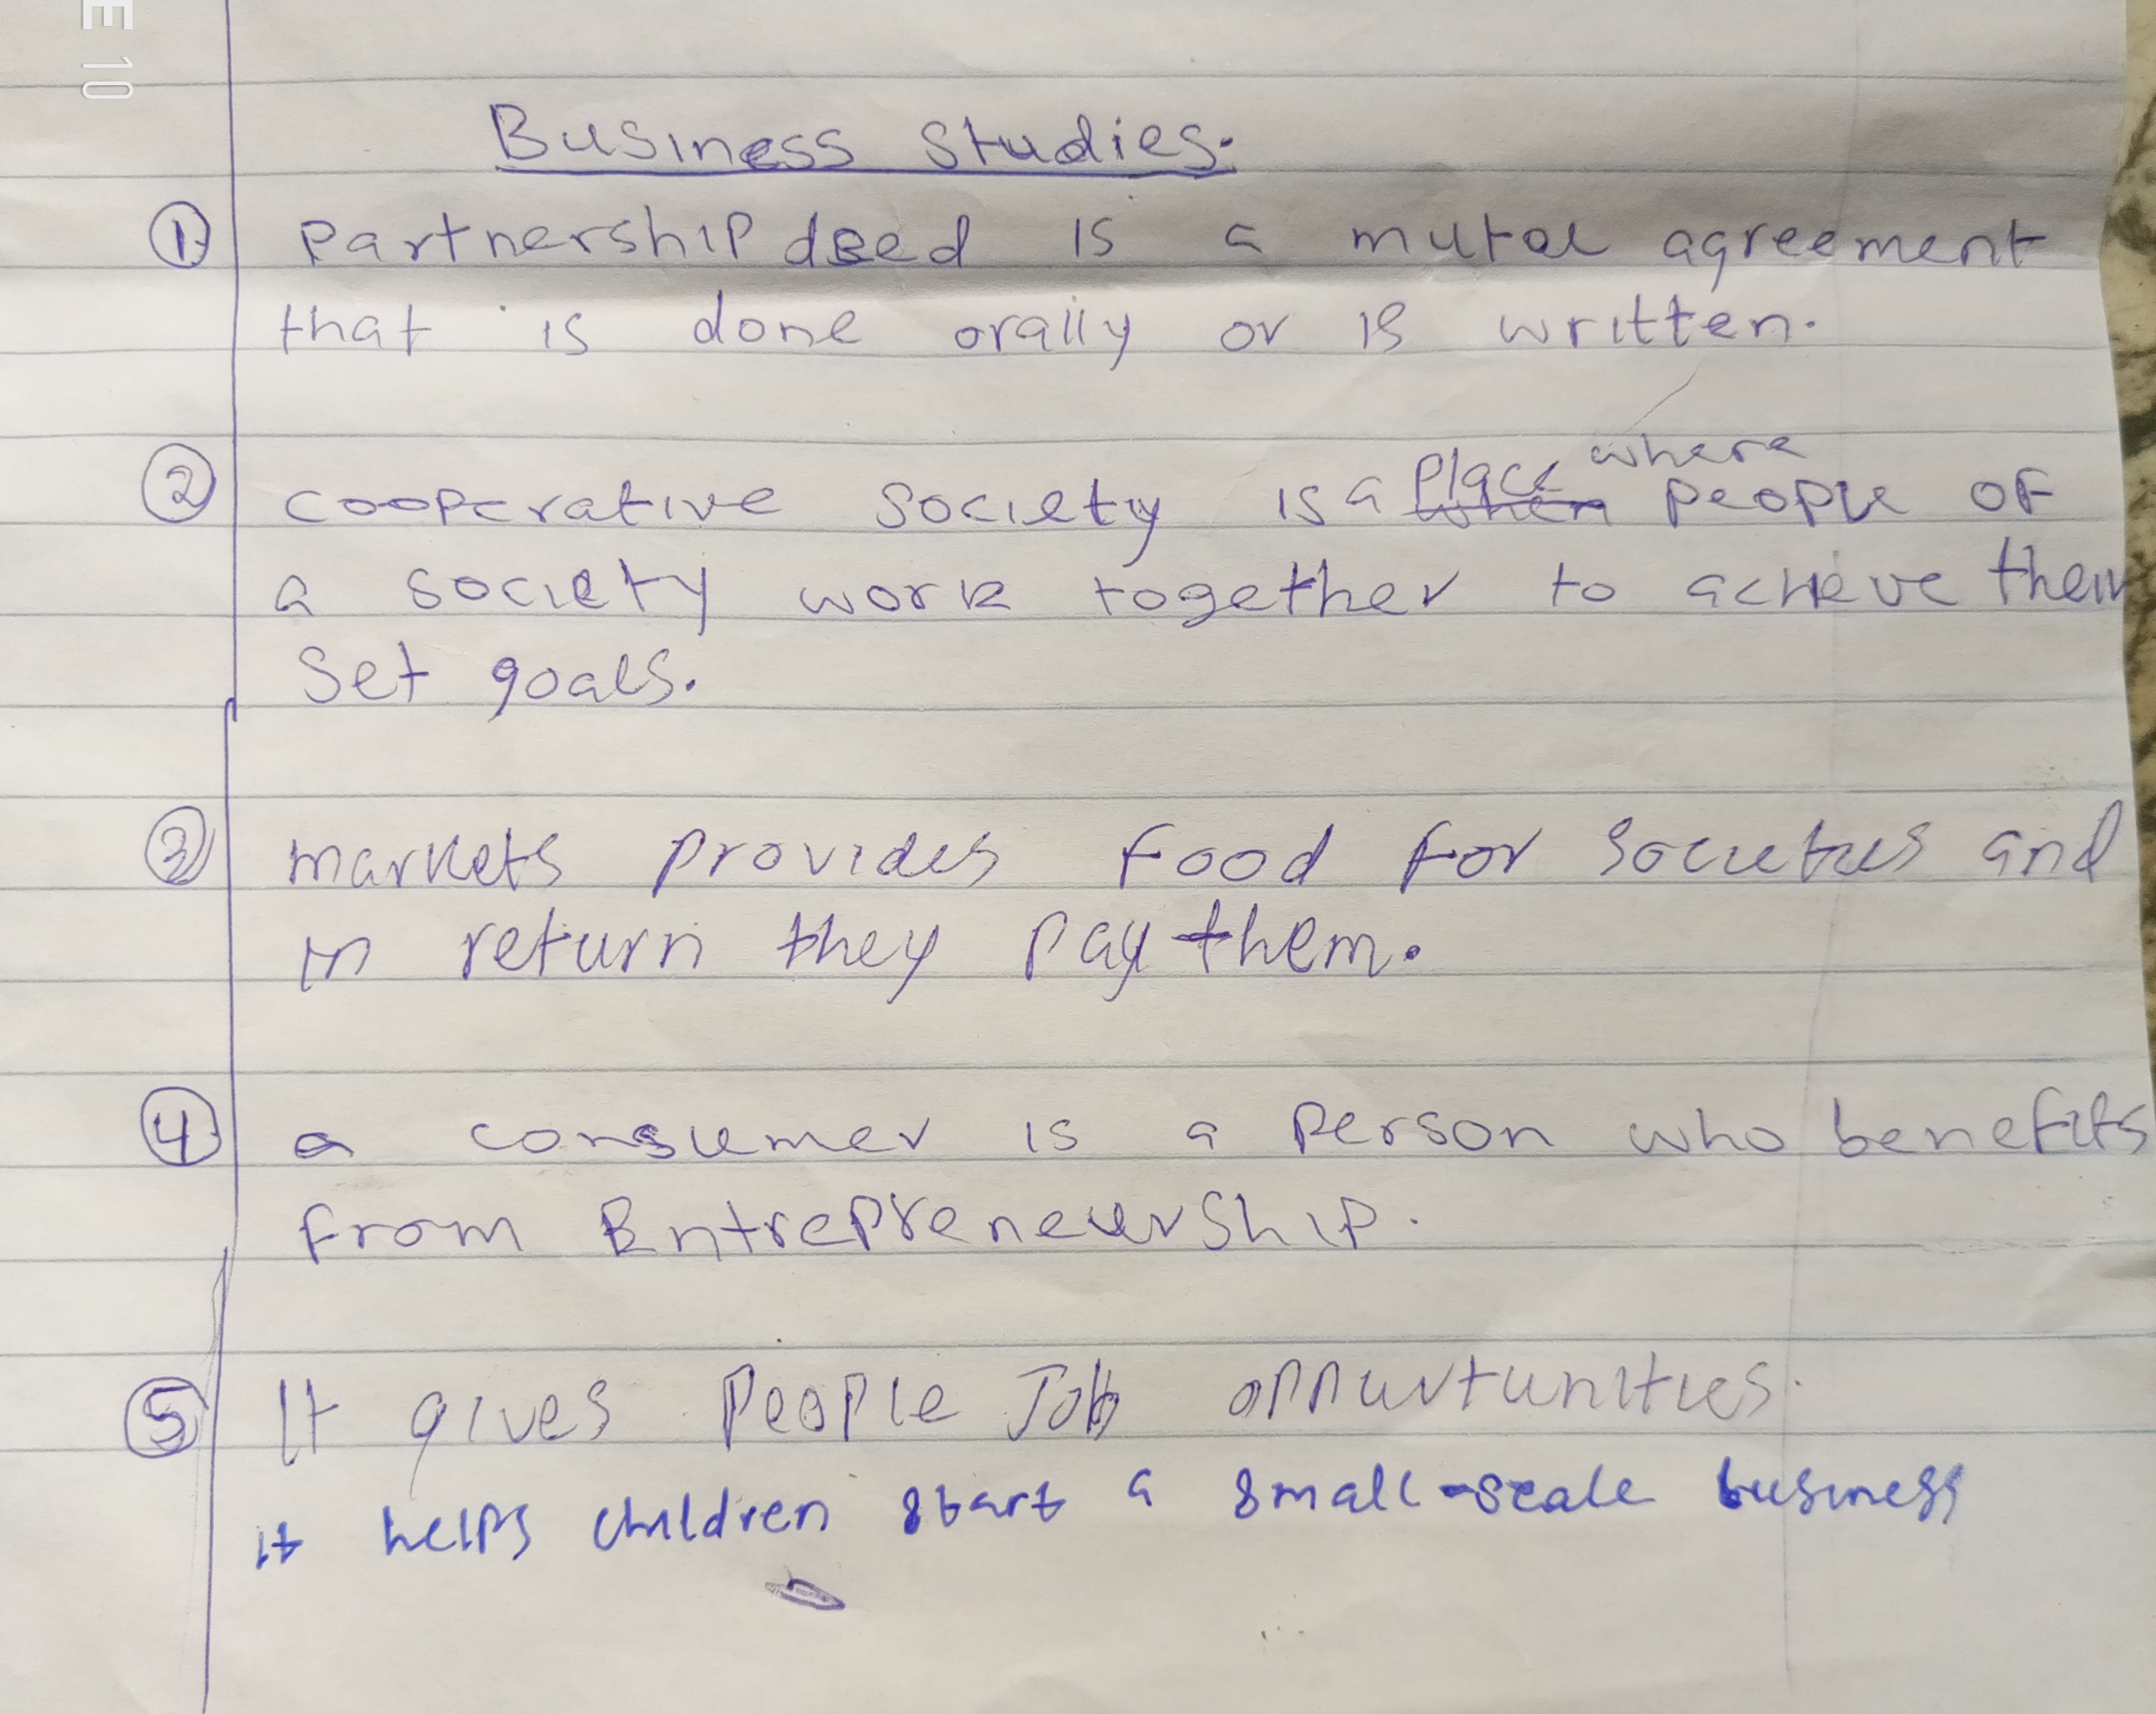 E 10
Business Studies.
① Partnership deed is a mutal agreement
that is done orally or is written.
② cooperative society is a place where when people of
a society work together to achieve their
set goals.
③ markets provides food for societies and
in return they pay them.
④ a consumer is a person who benefits
from Entrepreneurship.
⑤ It gives People Job oppurtunities.
it helps children start a small-scale business